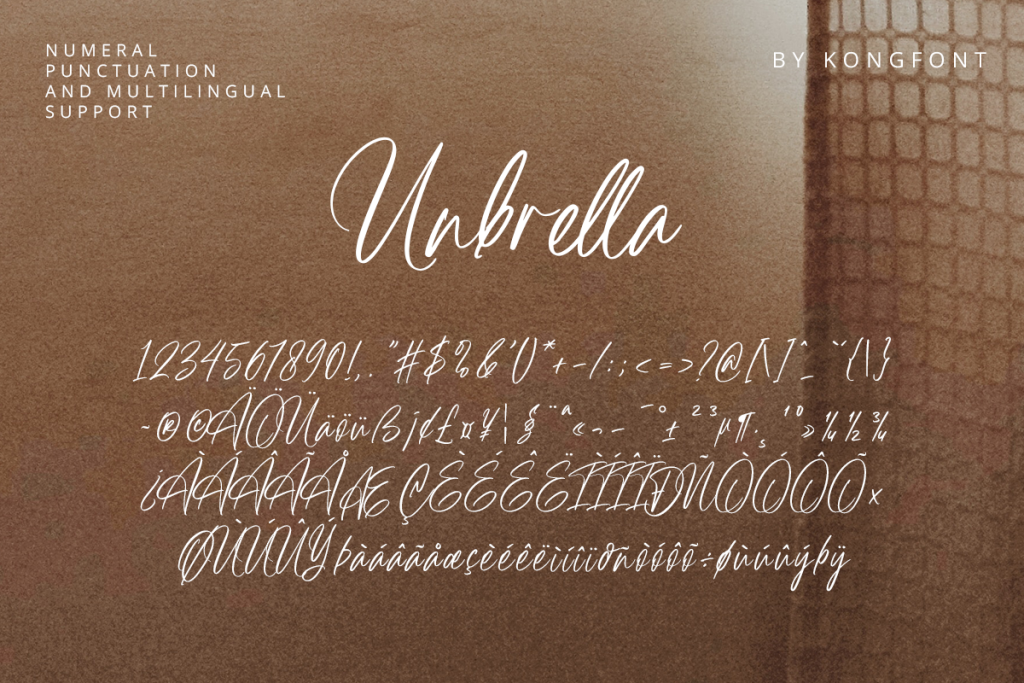 NUMERAL
PUNCTUATION
AND MULTILINGUAL
SUPPORT
BY KONGFONT
Unbrella
1234567890!,. "#$%&'()*+-/:;<=>?@[\]^_ ˘{|}
~®©ÄÖÜäöüß¡¢£¤¥|§¨ª«¬– ¯°±²³µ¶·¸¹º»¼½¾
¿ÀÁÂÃÅÆÇÈÉÊËÌÍÎÏÐÑÒÓÔÕ×
ØÙÚÛÝþàáâãåæçèéêëìíîïðñòóôõ÷øùúûýþÿ